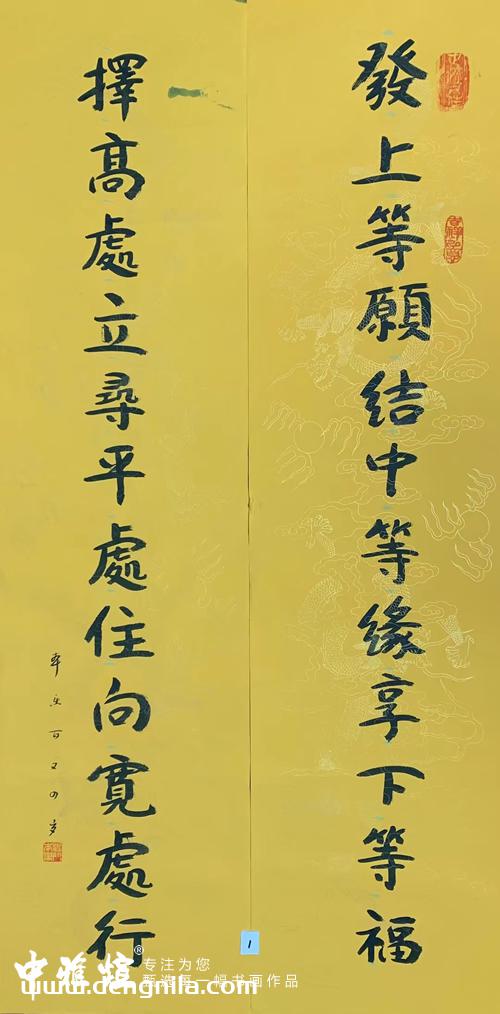 發上等願結中等緣享下等福
擇高處立尋平處住向寬處行
1
中雅煊®
专注为您
甄选每一幅书画作品
www.dengnila.com